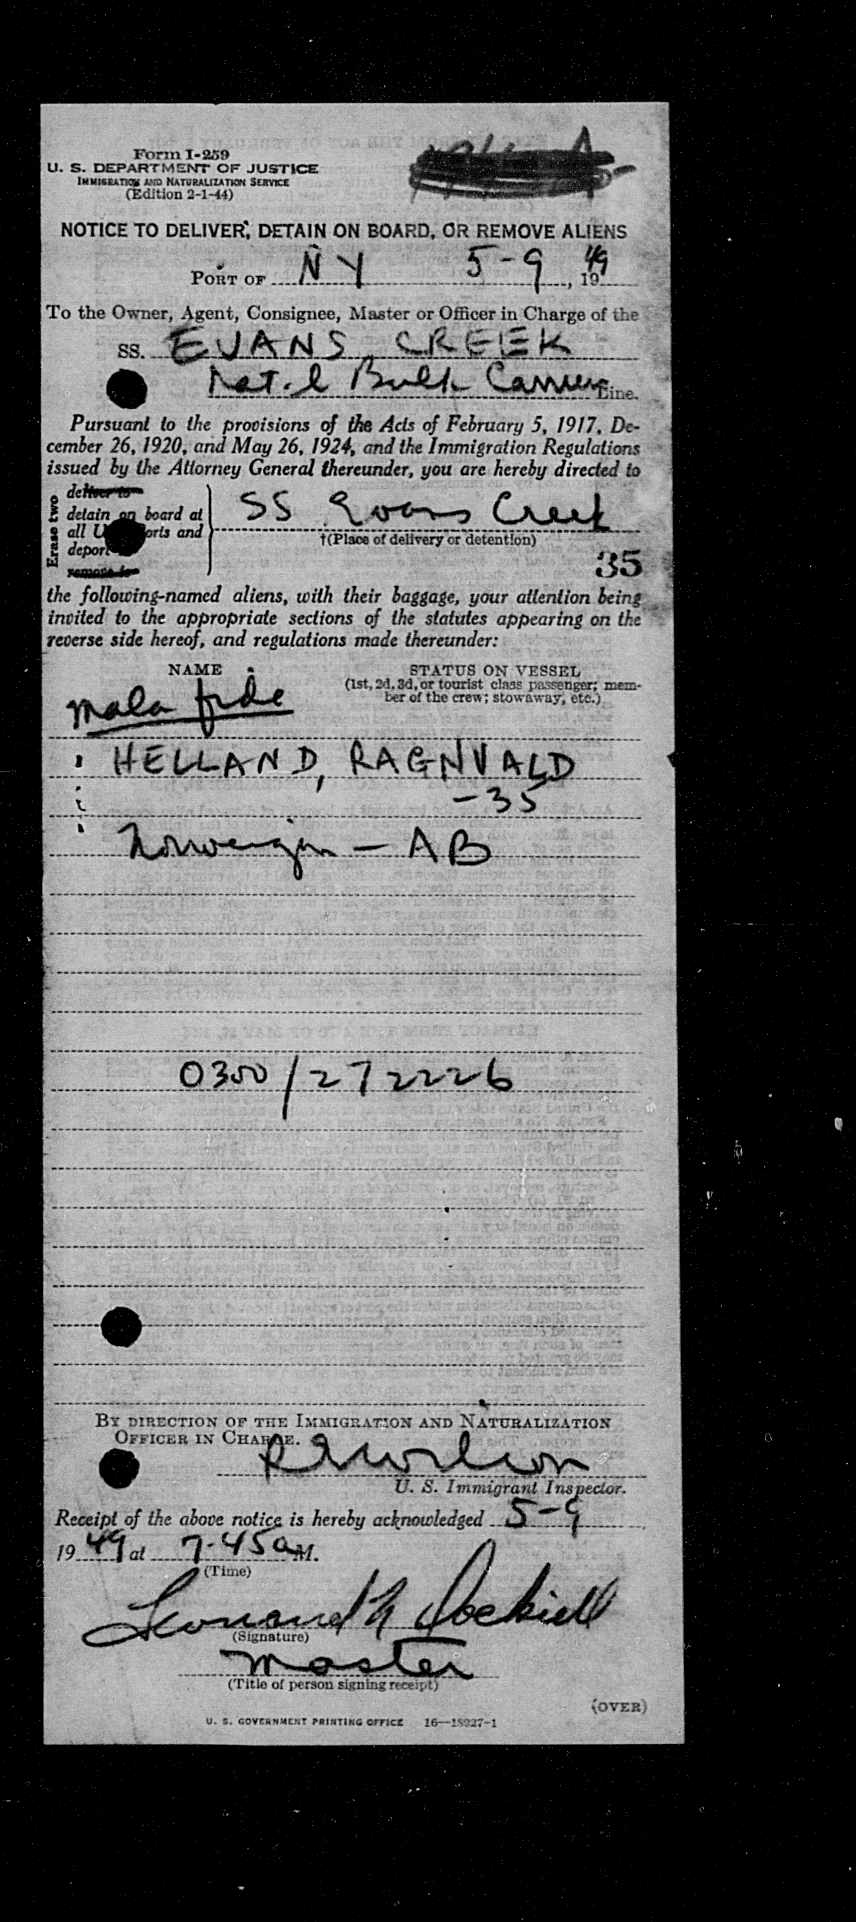 Form I-259
U. S. DEPARTMENT OF JUSTICE
IMMIGRATION AND NATURALIZATION SERVICE
(Edition 2-1-44)
NOTICE TO DELIVER, DETAIN ON BOARD, OR REMOVE ALIENS
PORT OF NY 5-9, 1949
To the Owner, Agent, Consignee, Master or Officer in Charge of the
SS. EVANS CREEK
Nat.l Bulk Carriers Line.
Pursuant to the provisions of the Acts of February 5, 1917, De-
cember 26, 1920, and May 26, 1924, and the Immigration Regulations
issued by the Attorney General thereunder, you are hereby directed to
Erase two
deliver to
detain on board at
all U orts and
deport
remove to
SS Evans Creek
†(Place of delivery or detention)
35
the following-named aliens, with their baggage, your attention being
invited to the appropriate sections of the statutes appearing on the
reverse side hereof, and regulations made thereunder:
NAME STATUS ON VESSEL
(1st, 2d, 3d, or tourist class passenger; mem-
ber of the crew; stowaway, etc.)
mala fide
HELLAND, RAGNVALD
-35
Norwegian - AB
0300/272226
BY DIRECTION OF THE IMMIGRATION AND NATURALIZATION
OFFICER IN CHARGE.
Wilson
U. S. Immigrant Inspector.
Receipt of the above notice is hereby acknowledged 5-9
1949 at 7.45 a M.
(Time)
Leonard
(Signature)
master
(Title of person signing receipt)
(OVER)
U. S. GOVERNMENT PRINTING OFFICE 16—18927-1